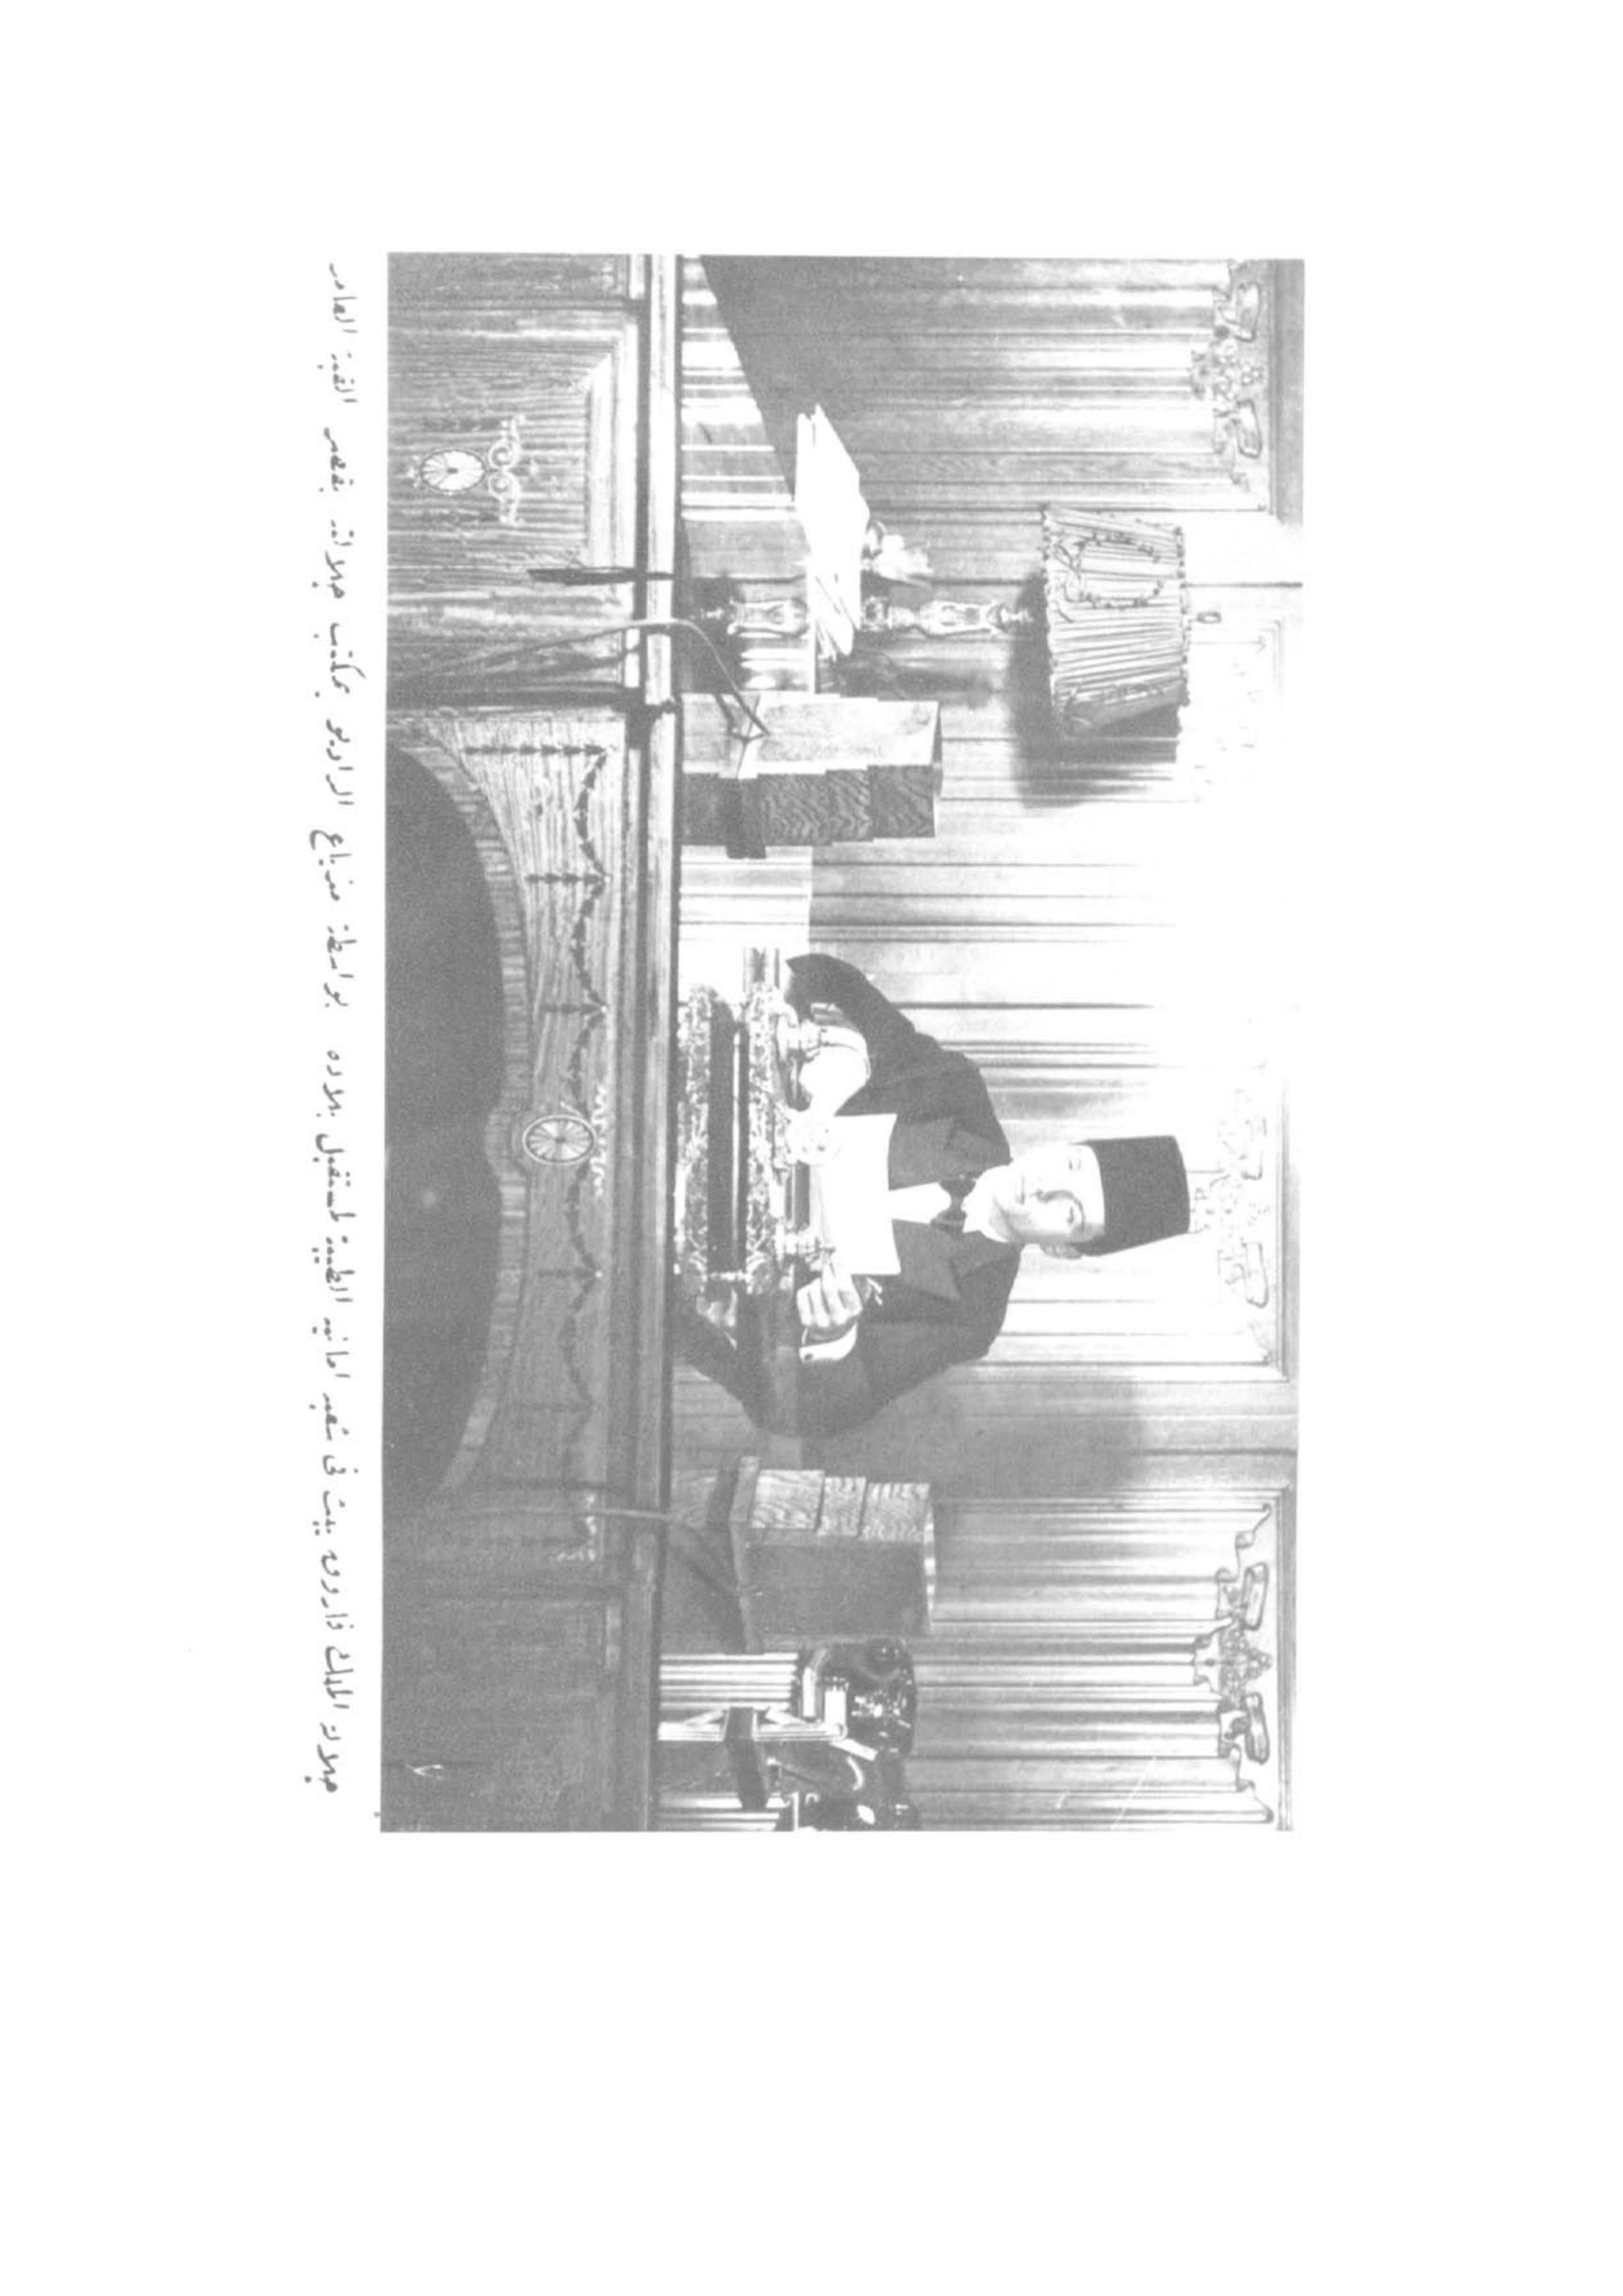 جلالة الملك فاروق يبث فى شعبه امانيه الطيبة لمستقبل بلاده بواسطة مذياع الراديو بمكتب جلالته بقصر القبة العامر